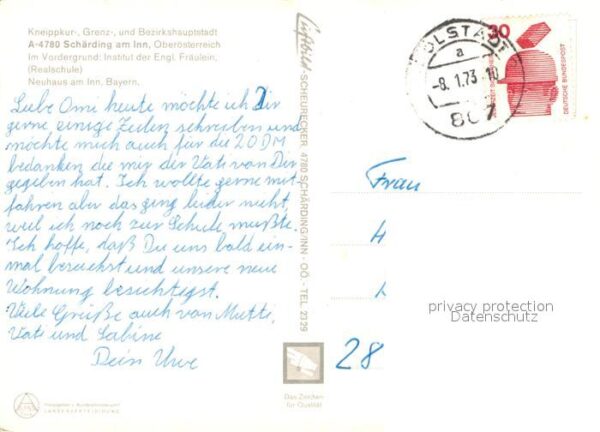 Kneippkur-, Grenz-, und Bezirkshauptstadt
A-4780 Schärding am Inn, Oberösterreich
Im Vordergrund: Institut der Engl. Fräulein,
(Realschule)
Neuhaus am Inn, Bayern.
Liebe Omi heute möchte ich Dir
gerne einige Zeilen schreiben und
möchte mich auch für die 20 DM
bedanken die mir der Vati von Dir
gegeben hat. Ich wollte gerne mit-
fahren aber das ging leider nicht,
weil ich noch zur Schule mußte.
Ich hoffe, daß Du uns bald ein-
mal besuchst und unsere neue
Wohnung besichtigst.
Viele Grüße auch von Mutti,
Vati und Sabine
Dein Uwe
LANDESVERTEIDIGUNG
Luftbild SCHEURECKER 4780 SCHÄRDING/INN - OÖ - TEL 2329
Das Zeichen
für Qualität
OLSTADT
a
-8.1.73.10
807
30
DEUTSCHE BUNDESPOST
Frau
H
L
28
privacy protection
Datenschutz